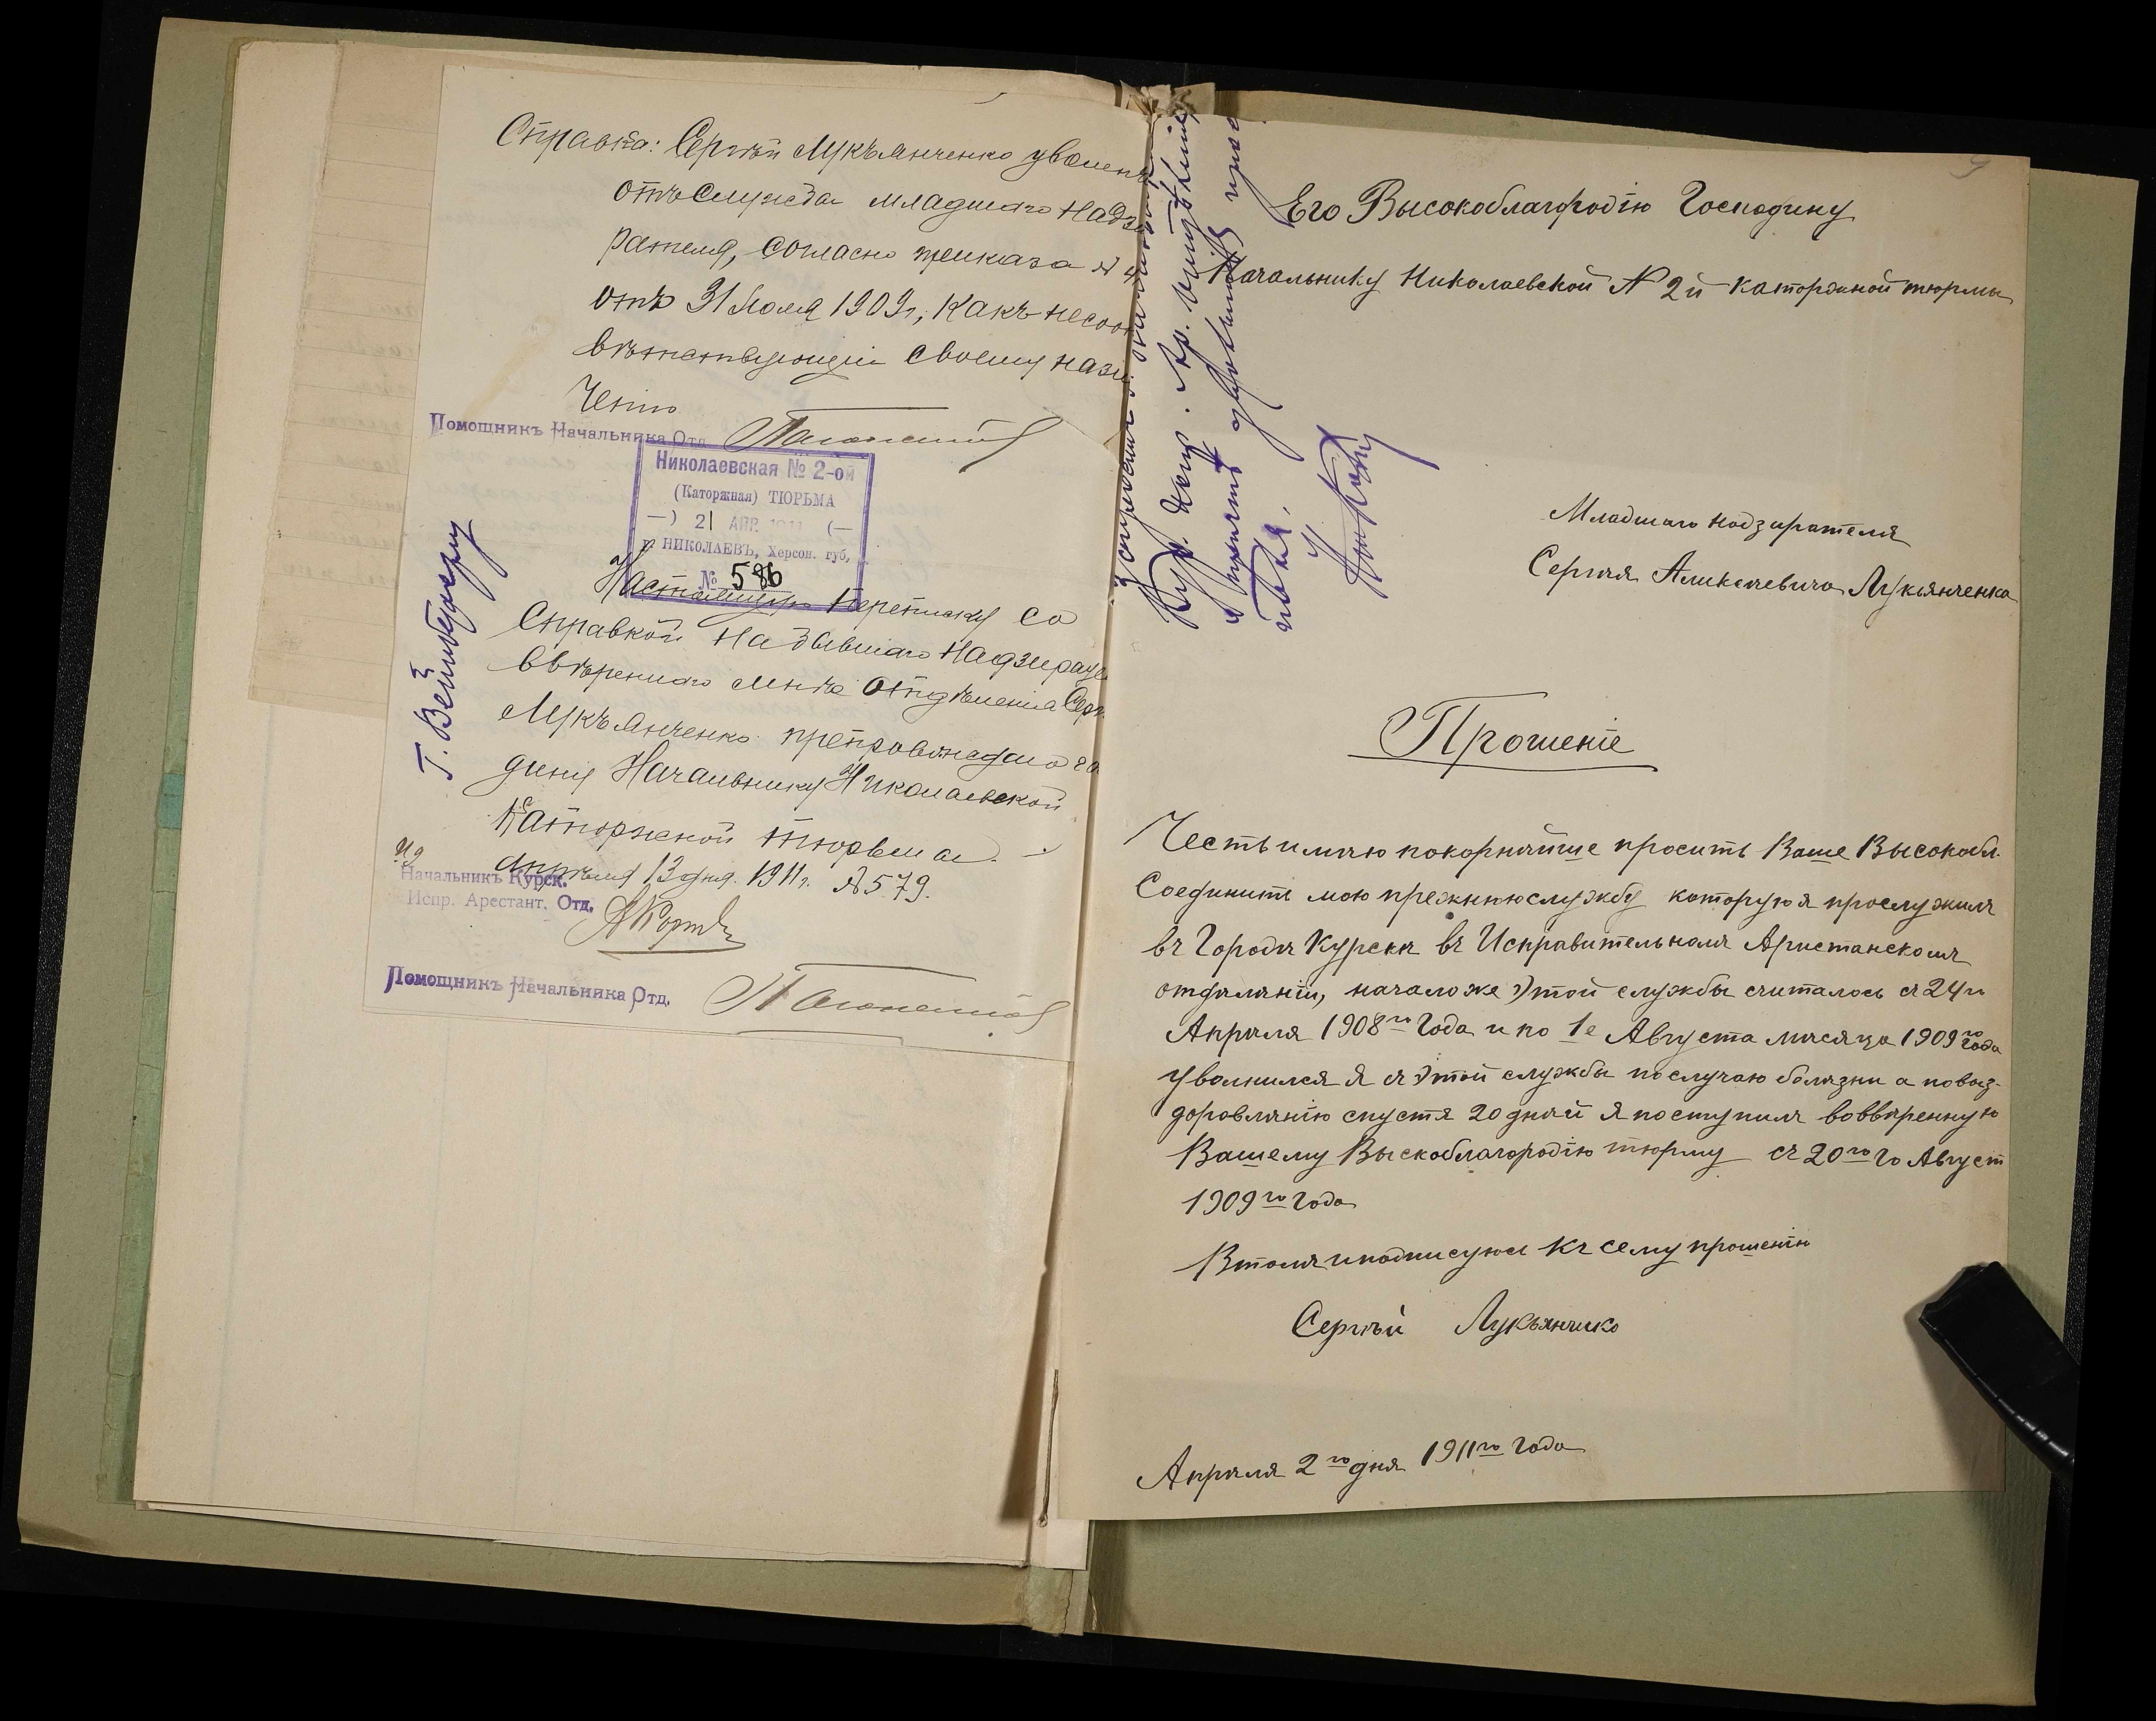 Справка: Сергѣй Лукъянченко уволенъ
отъ службы младшаго надзи
рателя, согласно приказа №
отъ 31 Іюля 1909г, какъ несоот
вѣтствующій своему назн
ченію
Помощникъ Начальника Отд.
Николаевская № 2-ой
(Каторжная) ТЮРЬМА
—) 21 АПР. 1911 (—
г. НИКОЛАЕВЪ, Херсон. губ,
№ 586
Настоящую переписку со
справкой на бывшаго надзират
ввѣреннаго мнѣ отдѣленія Серг
Лукъянченко препровождаю го
дину Начальнику Николаевской
Каторжной тюрьмы.
Апрѣля 13 дня. 1911г. № 579.
Начальникъ Курск.
Испр. Арестант. Отд.
Помощникъ Начальника Отд.
Г. Вейнбергеру
Его Высокоблагородію Господину
Начальнику Николаевской № 2й каторжной тюрмы
Младшаго надзирателя
Сергѣя Аликсѣевича Лукьянченка
Прошеніе
Честь имѣю покорнѣйше просить Ваше Высокобл.
Соединить мою прежнюю службу которую я прослужилъ
въ Городѣ Курскѣ въ Исправительномъ Аристанскомъ
отдѣлѣніи, начало же этой службы считалось съ 24го
Апрѣля 1908го Года и по 1е Августа мѣсяца 1909го Года
уволнился я съ этой службы по случаю болѣзни а повыз-
доровлѣнію спустя 20 дней я поступилъ вовввѣренную
Вашему Выскоблагородію тюрму съ 20го го Август
1909го Года
Втомъ и подписуюсь Къ сему прошенію
Сергѣй Лукьянчнко
Апрѣля 2го дня 1911го Года